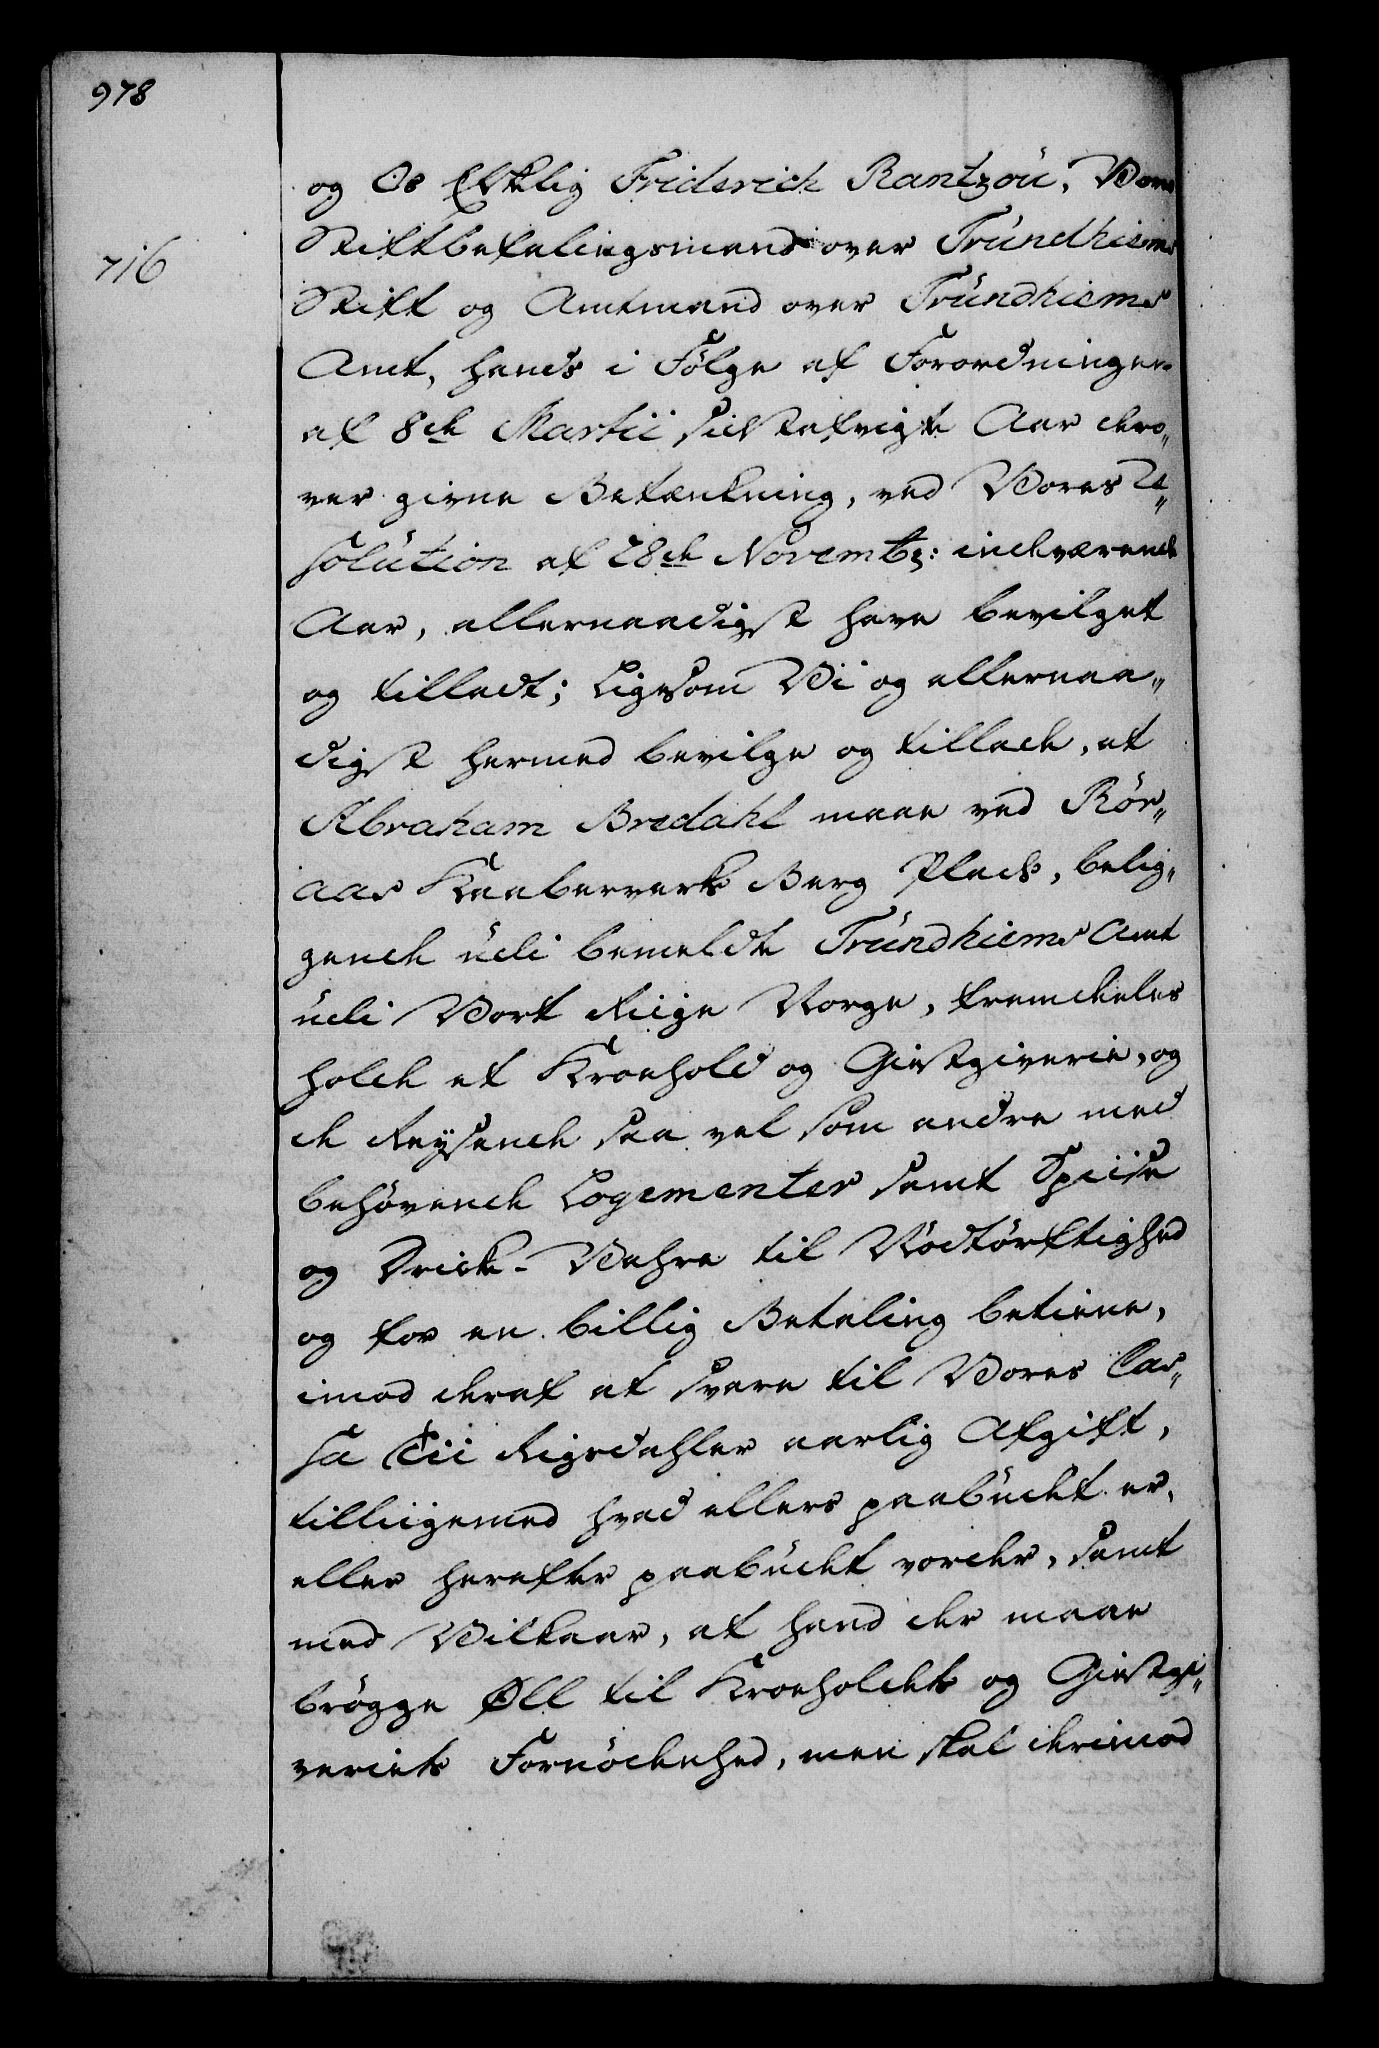 978
716
og Os Elskelig Friderich Rantzou, Vores
Stiftbefalingsmand over Trundhiems
Stift og Amtmand over Trundhiems
Amt, hands i Følge af Forordningen
af 8de Martii sidstafvigte Aar dero„
ver givne Betænkning, ved Vores Re„
solution af 28de Novembr: indeværende
Aar, allernaadigst have bevilget
og tilladt; Ligesom Vi og allernaa„
digst hermed bevilge og tillade, at
Abraham Bredahl maae ved Rör„
aas Kaaberverks Berg Plads, belig„
gende udi bemeldte Trundhiems Amt
udi Vort Rige Norge, fremdeles
holde et Kroehold og Giestgiverie, og
de Reysende saa vel som andre med
behøvende Logementer samt Spiise
og Dricke-Vahre til Nødtørftighed
og for en billig Betaling betiene,
imod deraf at svare til Vores Cas„
sa Tii Rigsdahler aarlig Afgift,
tilliigemed hvad ellers paabudet er,
eller herefter paabudet vorder, samt
med Vilkaar, at hand der maae
brøgge Øll til Kroeholdets og Giestgi„
veriets Fornødenhed, men skal derimod